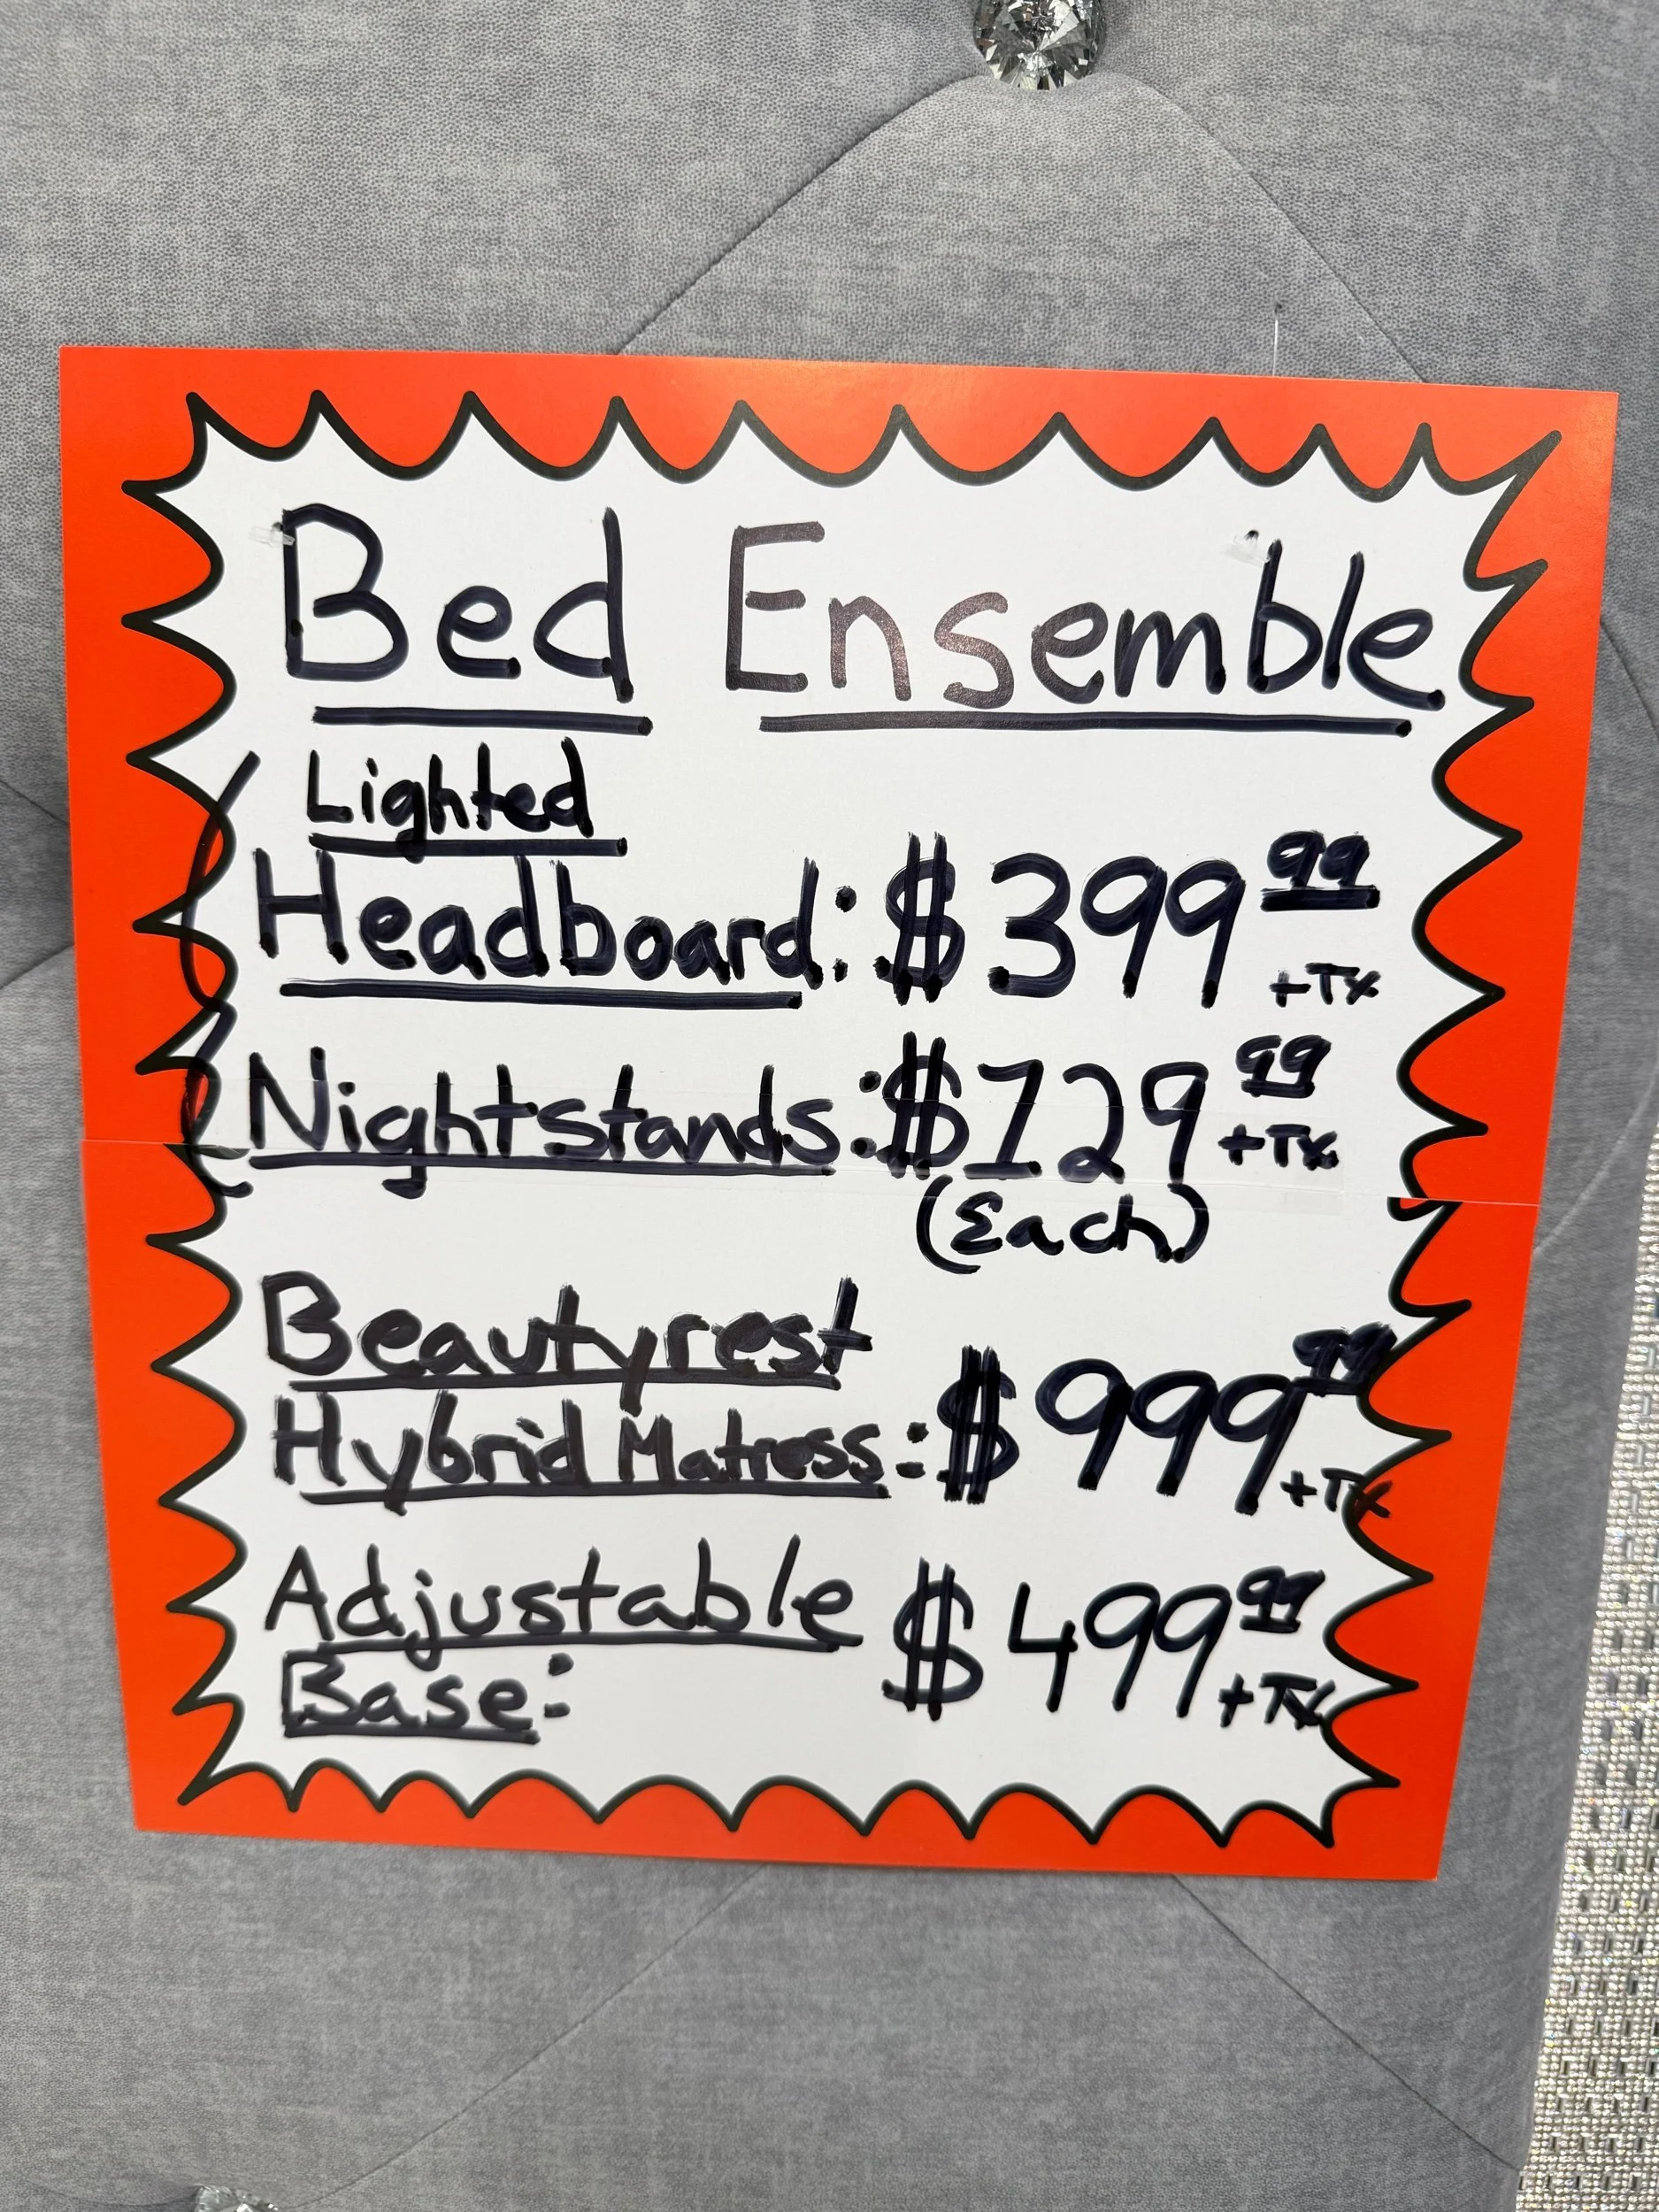 Bed Ensemble
Lighted
Headboard: $399 99 +Tx
Nightstands: $129 99 +Tx
(Each)
Beautyrest
Hybrid Matress: $999 99 +Tx
Adjustable $499 99 +Tx
Base: